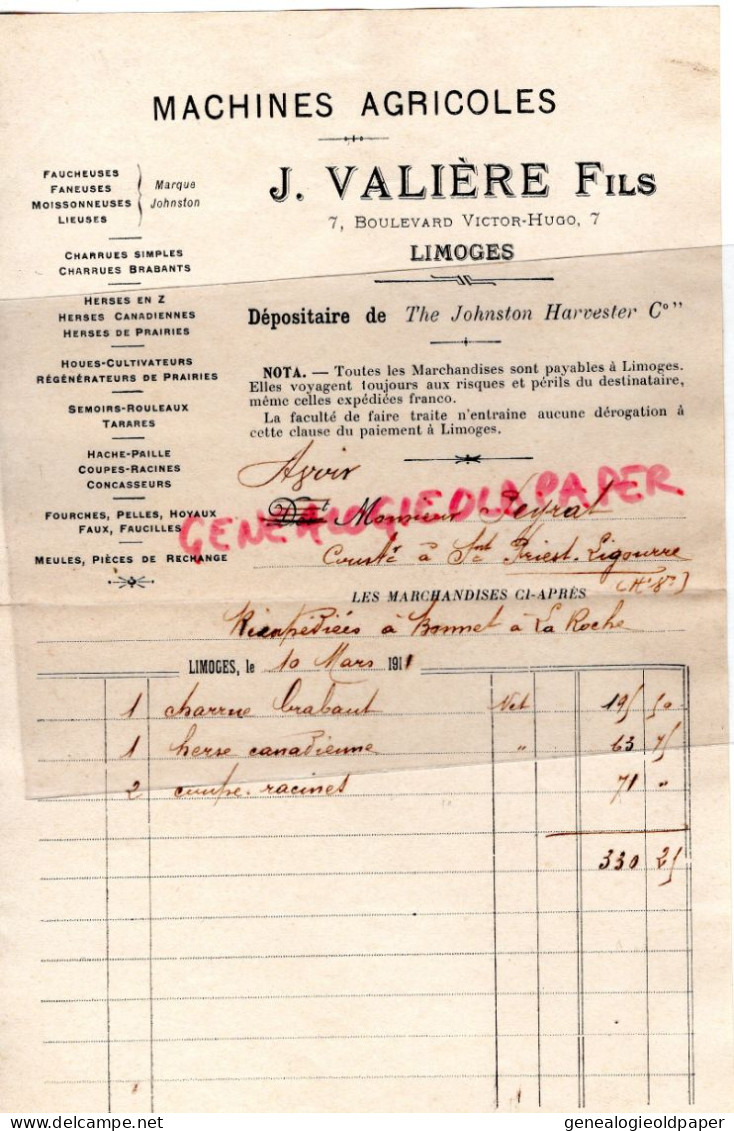 MACHINES AGRICOLES
FAUCHEUSES
FANEUSES
MOISSONNEUSES
LIEUSES
Marque
Johnston
CHARRUES SIMPLES
CHARRUES BRABANTS
HERSES EN Z
HERSES CANADIENNES
HERSES DE PRAIRIES
HOUES-CULTIVATEURS
RÉGÉNÉRATEURS DE PRAIRIES
SEMOIRS-ROULEAUX
TARARES
HACHE-PAILLE
COUPES-RACINES
CONCASSEURS
FOURCHES, PELLES, HOYAUX
FAUX, FAUCILLES
MEULES, PIÈCES DE RECHANGE
J. VALIÈRE FILS
7, BOULEVARD VICTOR-HUGO, 7
LIMOGES
Dépositaire de The Johnston Harvester Co"
NOTA. — Toutes les Marchandises sont payables à Limoges.
Elles voyagent toujours aux risques et périls du destinataire,
même celles expédiées franco.
La faculté de faire traite n'entraine aucune dérogation à
cette clause du paiement à Limoges.
Avoir
GENEALOGIEOLDPAPER.
Doit Monsieur Peyrat
à St Priest-Ligourre
(Hte Vne)
LES MARCHANDISES CI-APRÈS
à Bonnet à La Roche
LIMOGES, le 10 Mars 1911
1 charrue brabant Net 195 50
1 herse canadienne " 63 75
2 coupe-racines 71 "
330 25
genealogieoldpaper